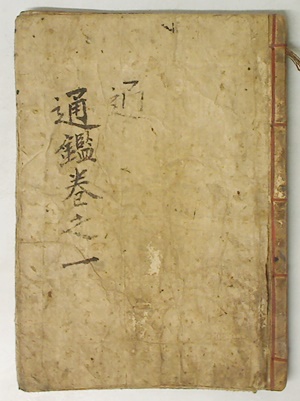 通
通鑑卷之一